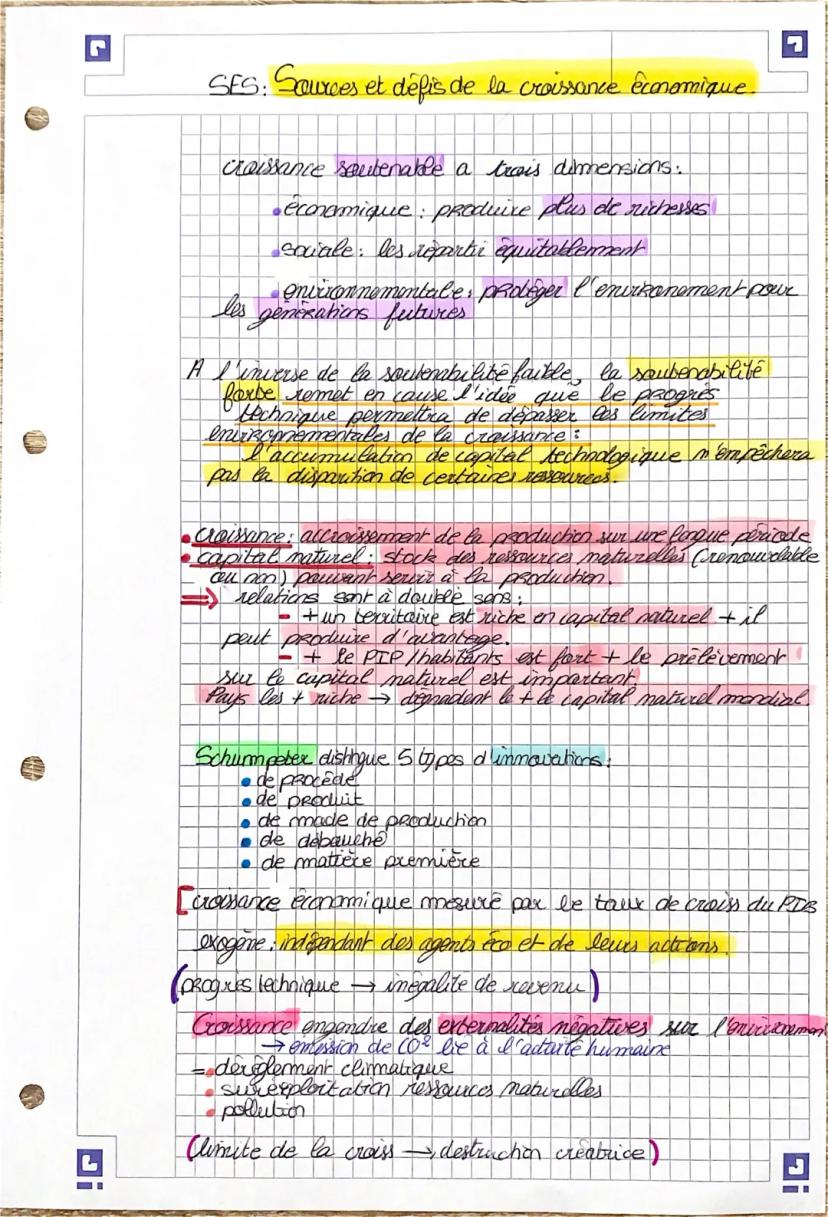 SES: Sources et défis de la croissance économique.
croissance soutenable a trois dimensions:
• économique: produire plus de richesses
• sociale: les répartir équitablement
• environnementale: protéger l'environement pour
les générations futures
A l'inverse de la soutenabilité faible, la soutenabilité
forte remet en cause l'idée que le progrès
technique permettra de dépasser les limites
environnementales de la croissance:
l'accumulation de capital technologique n'empêchera
pas la disparition de certaines ressources.
• croissance: accroissement de la production sur une longue période
• capital naturel: stock des ressources naturelles (renouvelable
ou non) pouvant servir à la production.
⇒ relations sont à double sens:
- + un territoire est riche en capital naturel + il
peut produire d'avantage.
- + le PIP/habitants est fort + le prélèvement
sur le capital naturel est important.
Pays les + riche → dégradent le + le capital naturel mondial.
Schumpeter distingue 5 types d'innovations:
• de procédé
• de produit
• de mode de production
• de débouché
• de matière première
[croissance économique mesuré par le taux de croiss du PIB
exogène: indépendant des agents éco et de leurs actions.
(progrès technique → inégalité de revenu)
Croissance engendre des externalités négatives sur l'environnement
→ émission de CO² lié à l'activité humaine
= • dérèglement climatique
• surexploitation ressources naturelles
• pollution
(limite de la croiss → destruction créatrice)